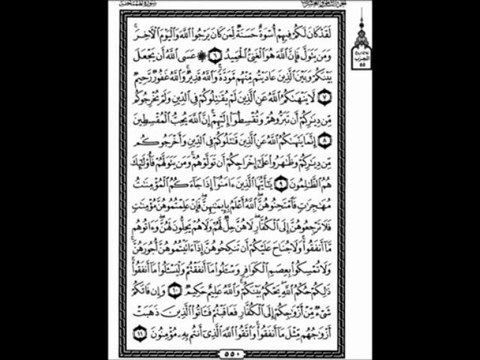 سورة الممتحنة
الجزء الثامن والعشرون
لَقَدْ كَانَ لَكُمْ فِيهِمْ أُسْوَةٌ حَسَنَةٌ لِّمَن كَانَ يَرْجُوا۟ ٱللَّهَ وَٱلْيَوْمَ ٱلْءَاخِرَ ۚ
وَمَن يَتَوَلَّ فَإِنَّ ٱللَّهَ هُوَ ٱلْغَنِىُّ ٱلْحَمِيدُ ٦ ۞ عَسَى ٱللَّهُ أَن يَجْعَلَ
بَيْنَكُمْ وَبَيْنَ ٱلَّذِينَ عَادَيْتُم مِّنْهُم مَّوَدَّةً ۚ وَٱللَّهُ قَدِيرٌ ۚ وَٱللَّهُ غَفُورٌ رَّحِيمٌ
٧ لَّا يَنْهَىٰكُمُ ٱللَّهُ عَنِ ٱلَّذِينَ لَمْ يُقَٰتِلُوكُمْ فِى ٱلدِّينِ وَلَمْ يُخْرِجُوكُم
مِّن دِيَٰرِكُمْ أَن تَبَرُّوهُمْ وَتُقْسِطُوٓا۟ إِلَيْهِمْ ۚ إِنَّ ٱللَّهَ يُحِبُّ ٱلْمُقْسِطِينَ
٨ إِنَّمَا يَنْهَىٰكُمُ ٱللَّهُ عَنِ ٱلَّذِينَ قَٰتَلُوكُمْ فِى ٱلدِّينِ وَأَخْرَجُوكُم
مِّن دِيَٰرِكُمْ وَظَٰهَرُوا۟ عَلَىٰٓ إِخْرَاجِكُمْ أَن تَوَلَّوْهُمْ ۚ وَمَن يَتَوَلَّهُمْ فَأُو۟لَٰٓئِكَ
هُمُ ٱلظَّٰلِمُونَ ٩ يَٰٓأَيُّهَا ٱلَّذِينَ ءَامَنُوٓا۟ إِذَا جَآءَكُمُ ٱلْمُؤْمِنَٰتُ
مُهَٰجِرَٰتٍ فَٱمْتَحِنُوهُنَّ ۖ ٱللَّهُ أَعْلَمُ بِإِيمَٰنِهِنَّ ۖ فَإِنْ عَلِمْتُمُوهُنَّ مُؤْمِنَٰتٍ
فَلَا تَرْجِعُوهُنَّ إِلَى ٱلْكُفَّارِ ۖ لَا هُنَّ حِلٌّ لَّهُمْ وَلَا هُمْ يَحِلُّونَ لَهُنَّ ۖ وَءَاتُوهُم
مَّآ أَنفَقُوا۟ ۚ وَلَا جُنَاحَ عَلَيْكُمْ أَن تَنكِحُوهُنَّ إِذَآ ءَاتَيْتُمُوهُنَّ أُجُورَهُنَّ ۚ
وَلَا تُمْسِكُوا۟ بِعِصَمِ ٱلْكَوَافِرِ وَسْـَٔلُوا۟ مَآ أَنفَقْتُمْ وَلْيَسْـَٔلُوا۟ مَآ أَنفَقُوا۟ ۚ
ذَٰلِكُمْ حُكْمُ ٱللَّهِ ۖ يَحْكُمُ بَيْنَكُمْ ۚ وَٱللَّهُ عَلِيمٌ حَكِيمٌ ١٠ وَإِن فَاتَكُمْ
شَىْءٌ مِّنْ أَزْوَٰجِكُمْ إِلَى ٱلْكُفَّارِ فَعَاقَبْتُمْ فَـَٔاتُوا۟ ٱلَّذِينَ ذَهَبَتْ
أَزْوَٰجُهُم مِّثْلَ مَآ أَنفَقُوا۟ ۚ وَٱتَّقُوا۟ ٱللَّهَ ٱلَّذِىٓ أَنتُم بِهِۦ مُؤْمِنُونَ ١١
٥٥٠
الحزب
٥٥